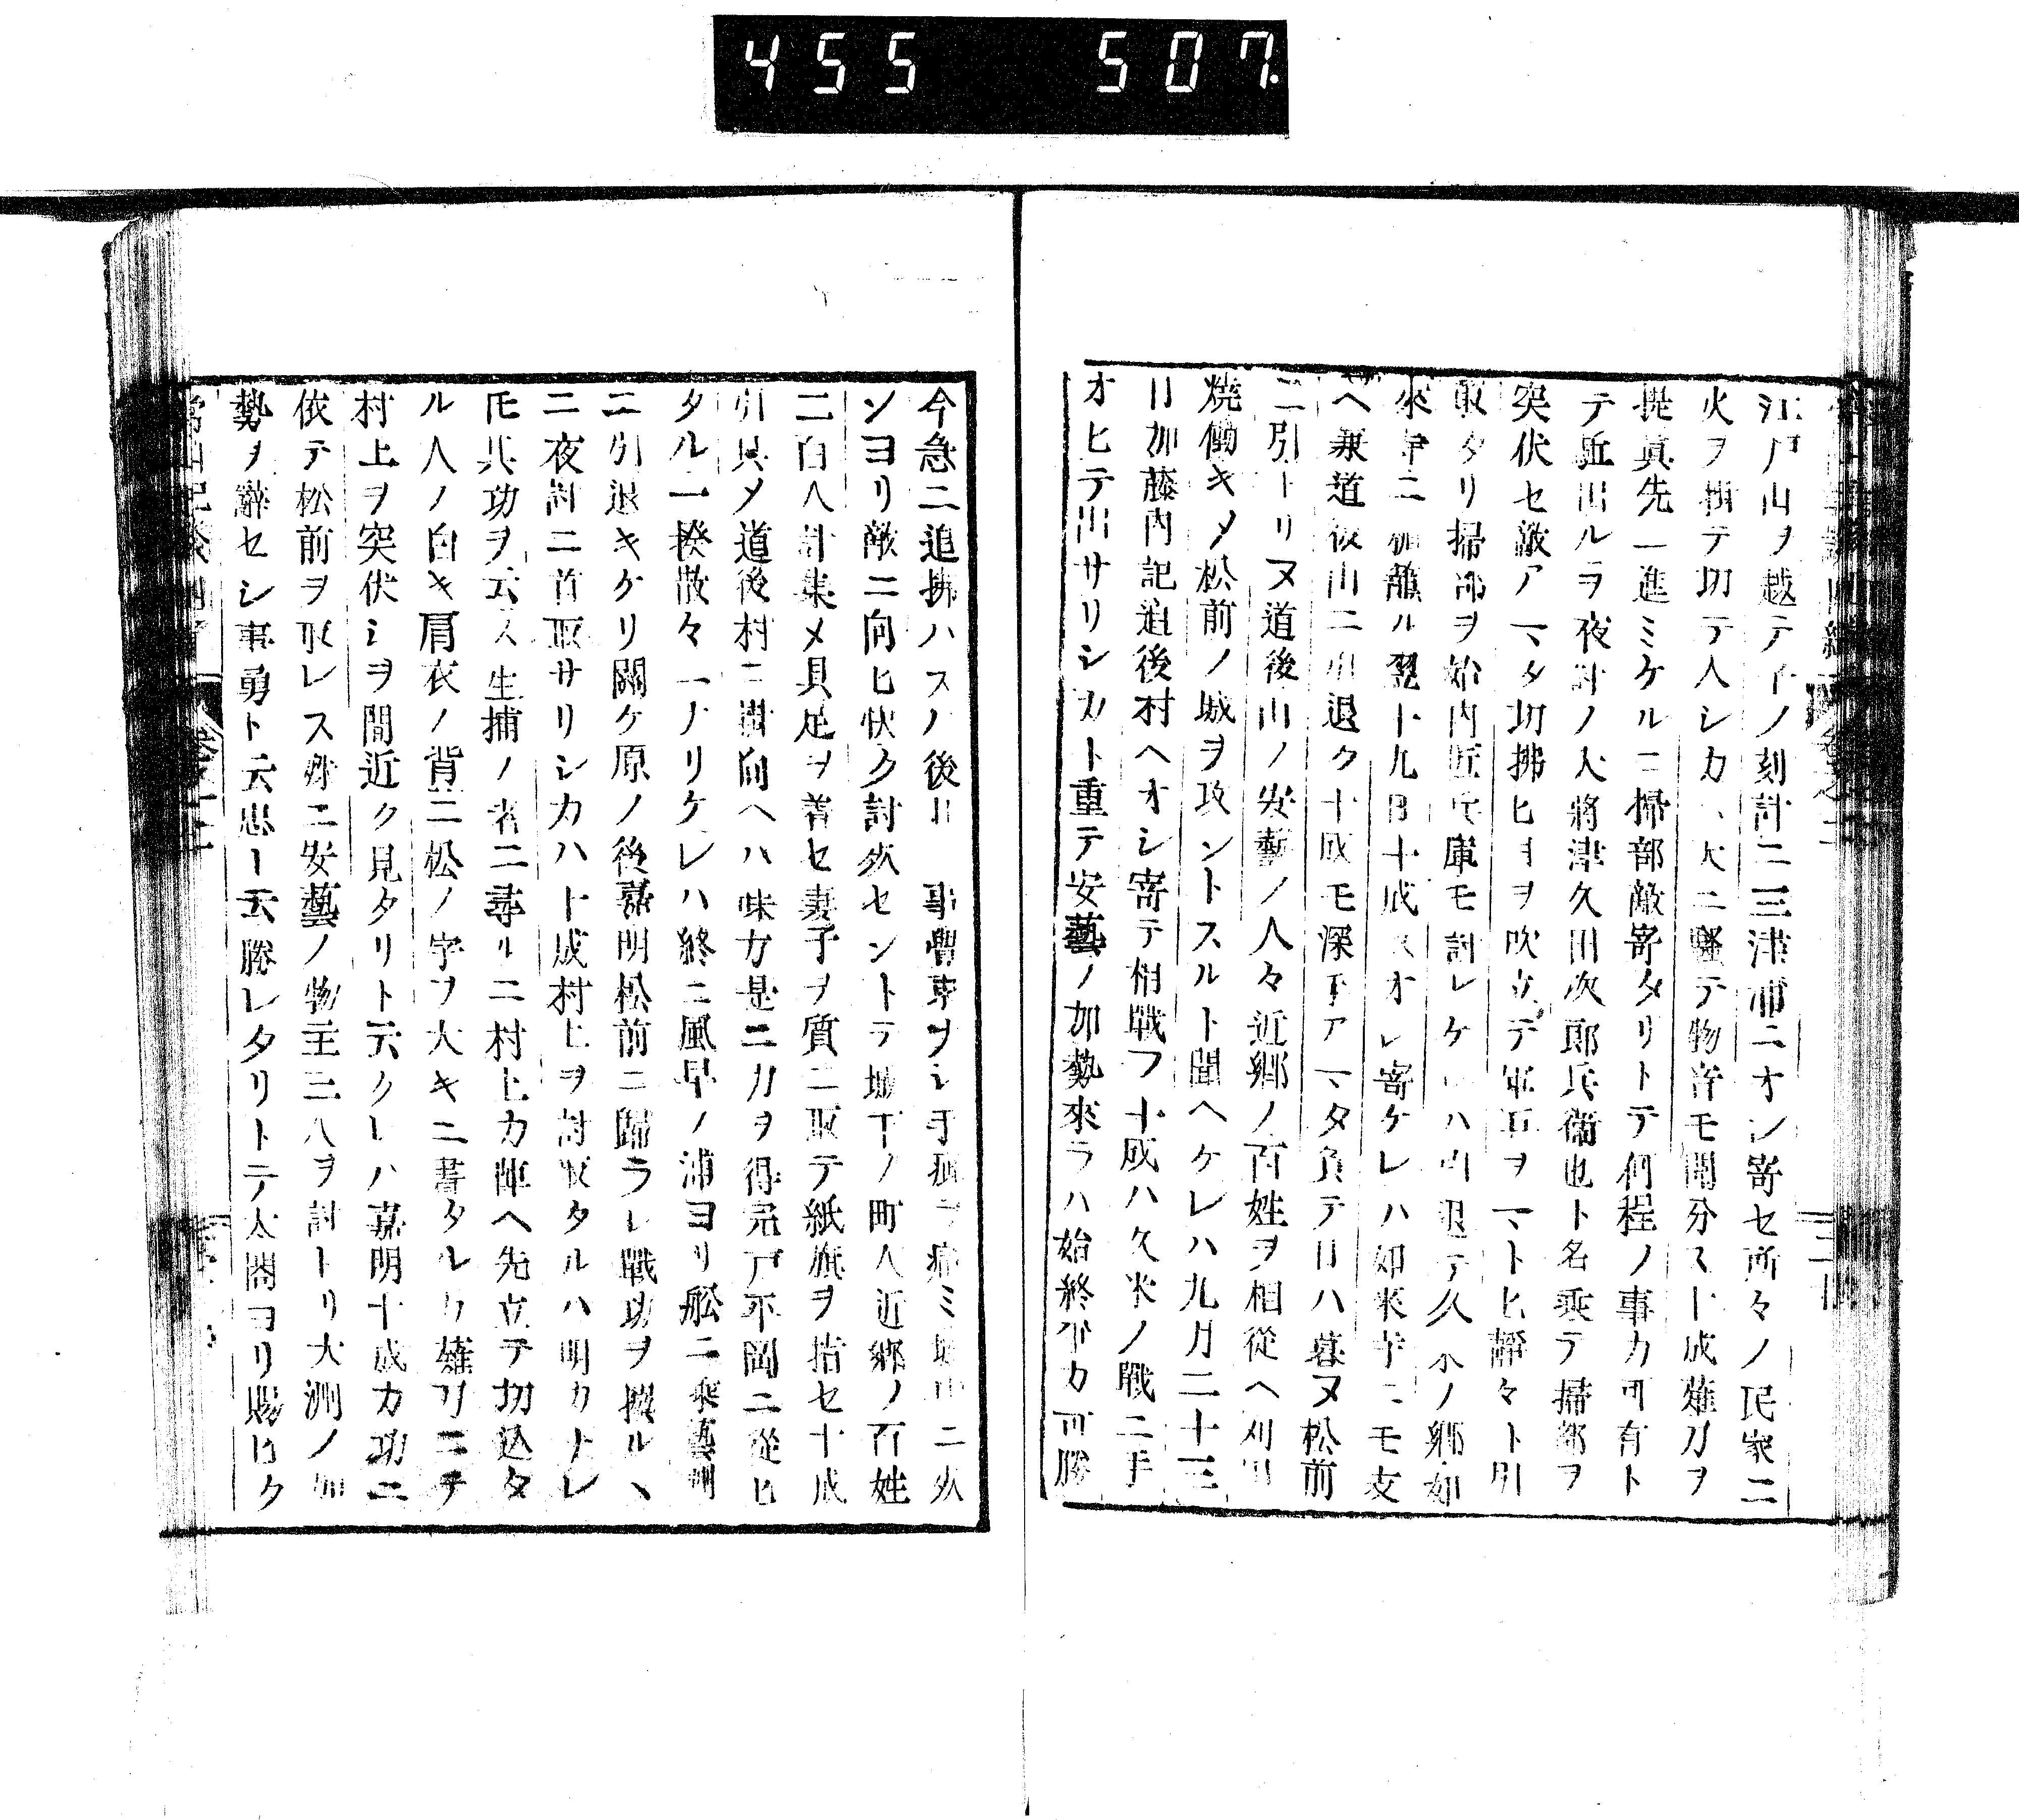 455 507
江戸山ヲ越テ子ノ刻計ニ三津浦ニオシ寄セ所々ノ民家ニ
火ヲ掛テ切テ入シカハ大ニ騒テ物音モ聞分ス十成薙刀ヲ
提真先ニ進ミケルニ掃部敵寄タリトテ何程ノ事カ可有ト
テ駈出ルヲ夜討ノ大將津久田次郎兵衞也ト名乗テ掃部ヲ
突伏セ敵アマタ切拂ヒ貝ヲ吹立テ軍兵ヲマトヒ靜々ト引
取タリ掃部ヲ始内匠兵庫モ討レケレハ引退テ久米ノ郷如
來寺ニ楯籠ル翌十九日十成又オシ寄ケレハ如來寺ニモ支
ヘ兼道後山ニ引退ク十成モ深手アマタ負テ日ハ暮ヌ松前
ニ引トリヌ道後山ノ安藝ノ人々近郷ノ百姓ヲ相從ヘ刈田
燒働キメ松前ノ城ヲ攻ントスルト聞ヘケレハ九月二十三
日加藤内記道後村ヘオシ寄テ相戰フ十成ハ久米ノ戰ニ手
オヒテ出サリシカト重テ安藝ノ加勢來ラハ始終不可勝
今急ニ追拂ハスハ後日 事豊束ヲシ手疵ヲ痛ミ城中ニ死
ンヨリ敵ニ向ヒ快ク討死セントテ城下ノ町人近郷ノ百姓
二百人計集メ具足ヲ着セ妻子ヲ質ニ取テ紙旗ヲ指セ十成
引具メ道後村ニ掛向ヘハ味方是ニ力ヲ得宍戸平岡ニ從ヒ
タル一揆散々ニナリケレハ終ニ風早ノ浦ヨリ舩ニ乘藝州
ニ引退キケリ關ケ原ノ後嘉明松前ニ歸ラレ戰功ヲ撰ルヽ
ニ夜討ニ首取サリシカハ十成村上ヲ討取タルハ明カナレ
𪜈其功ヲ云ス生捕ノ者ニ尋ルニ村上カ陣ヘ先立テ切込タ
ル人ノ白キ肩衣ノ背ニ松ノ字ヲ大キニ書タルカ薙刀ニテ
村上ヲ突伏シヲ間近ク見タリト云クレハ嘉明十成カ功ニ
依テ松前ヲ取レス殊ニ安藝ノ物主三人ヲ討トリ大洲ノ加
勢ヲ辭セシ事勇ト云忠ト云勝レタリトテ太閤ヨリ賜ヒタ